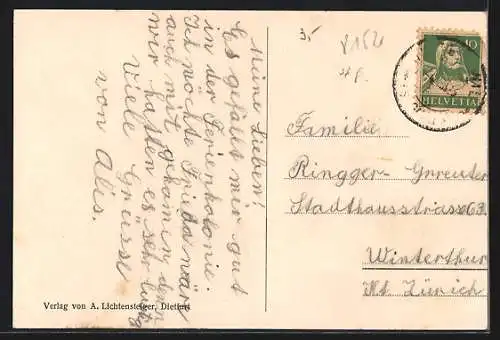 Meine Lieben!
Es gefällt mir gut
in der Ferienkolonie.
Ich möchte Frieda wäre
auch mit gekommen denn
wir hatten es sehr lustig
Viele Grüsse
von Alis.
Verlag von A. Lichtensteiger, Dietfurt
35
8152
48.
10
HELVETIA
Familie
Ringger-Gnreuter
Stadthausstrasse 63.
Winterthur
Kt. Zürich